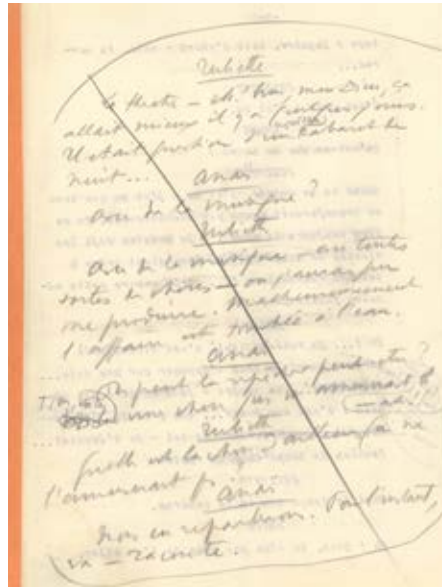 Zubette
Le theatre – eh! bien, mon Dieu, ça
allait mieux il y a quelques jours.
Il était question d'un cabaret de
nuit...
Anas
Avec de la musique ?
Zubette
Avec de la musique – avec toutes
sortes de choses – où j'aurais pu
me produire. Malheureusement
l'affaire est tombée à l'eau.
Anas
On peut la repêcher peut-être ?
une chose qui m'amuserait
Zubette
Quelle est la chose
l'amuserait
Anas
Nous en reparlerons. Pour l'instant,
va – raconte.